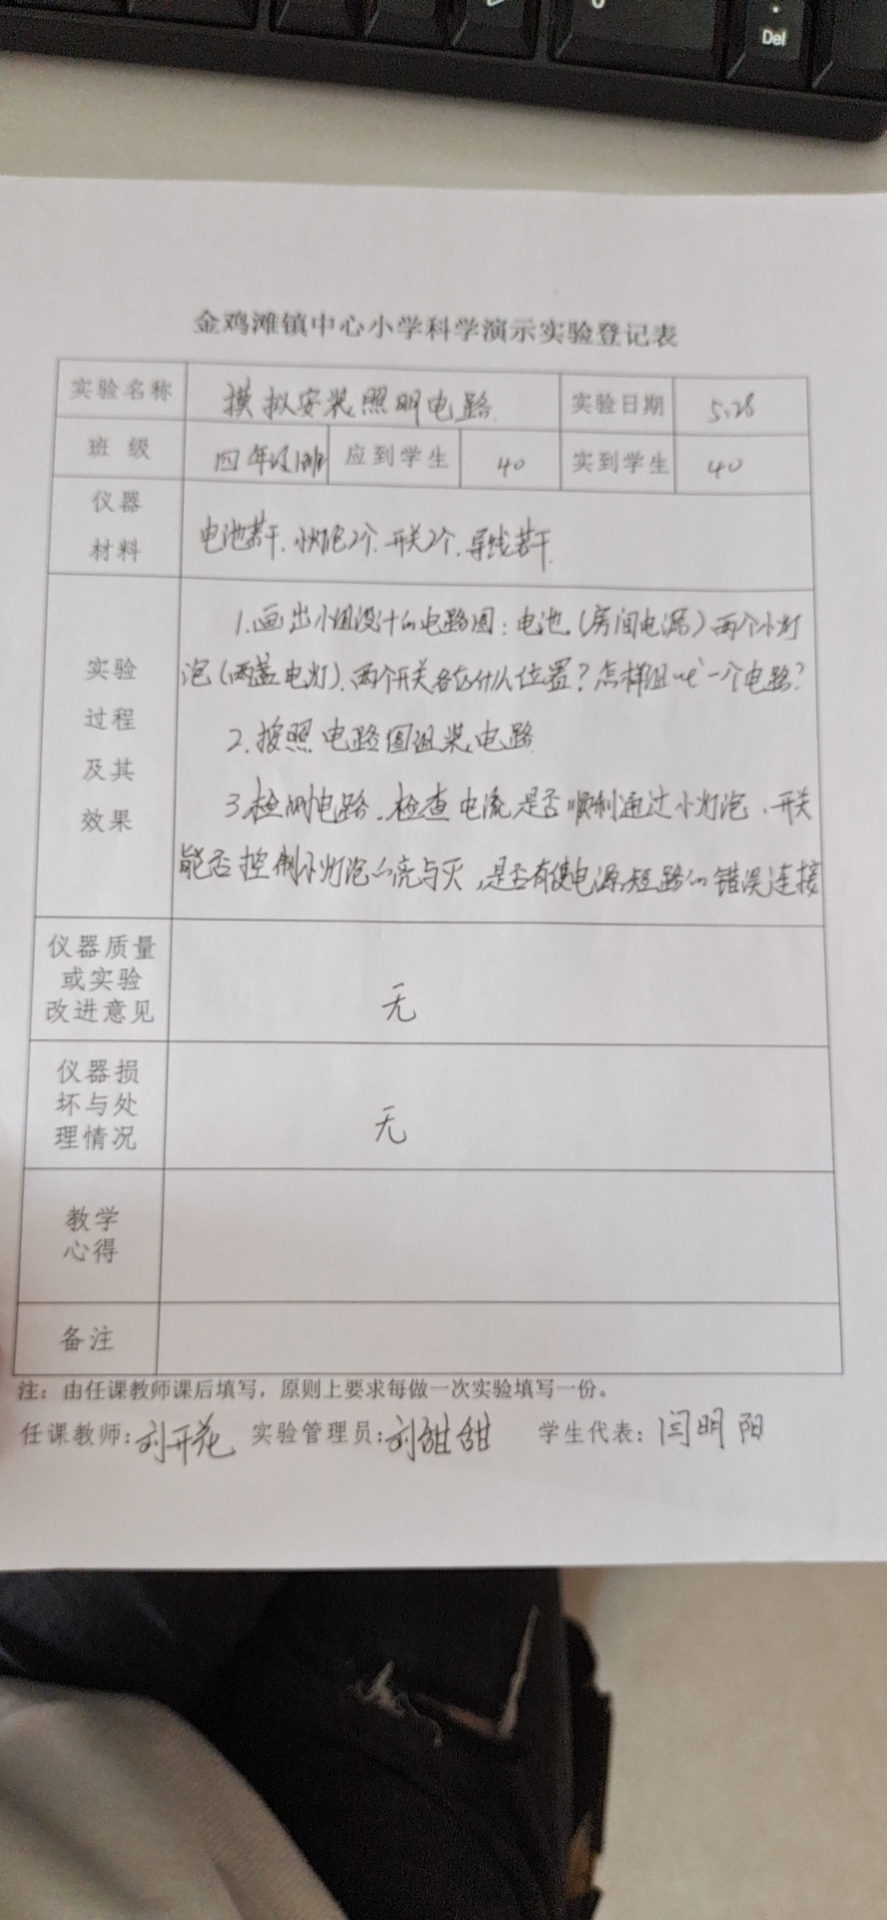 Del
金鸡滩镇中心小学科学演示实验登记表
实验名称 模拟安装照明电路 实验日期 5.28
班 级 四年级1班 应到学生 40 实到学生 40
仪器
材料
电池若干、小灯泡2个、开关2个、导线若干
实验
过程
及其
效果
1.画出小组设计的电路图：电池（房间电源）两个小灯
泡（两盏电灯）、两个开关各在什么位置？怎样组成一个电路？
2.按照电路图组装电路
3.检测电路，检查电流是否顺利通过小灯泡、开关
能否控制小灯泡的亮与灭，是否有使电源短路的错误连接
仪器质量
或实验
改进意见
无
仪器损
坏与处
理情况
无
教学
心得
备注
注：由任课教师课后填写，原则上要求每做一次实验填写一份。
任课教师：刘开花 实验管理员：刘甜甜 学生代表：闫明阳